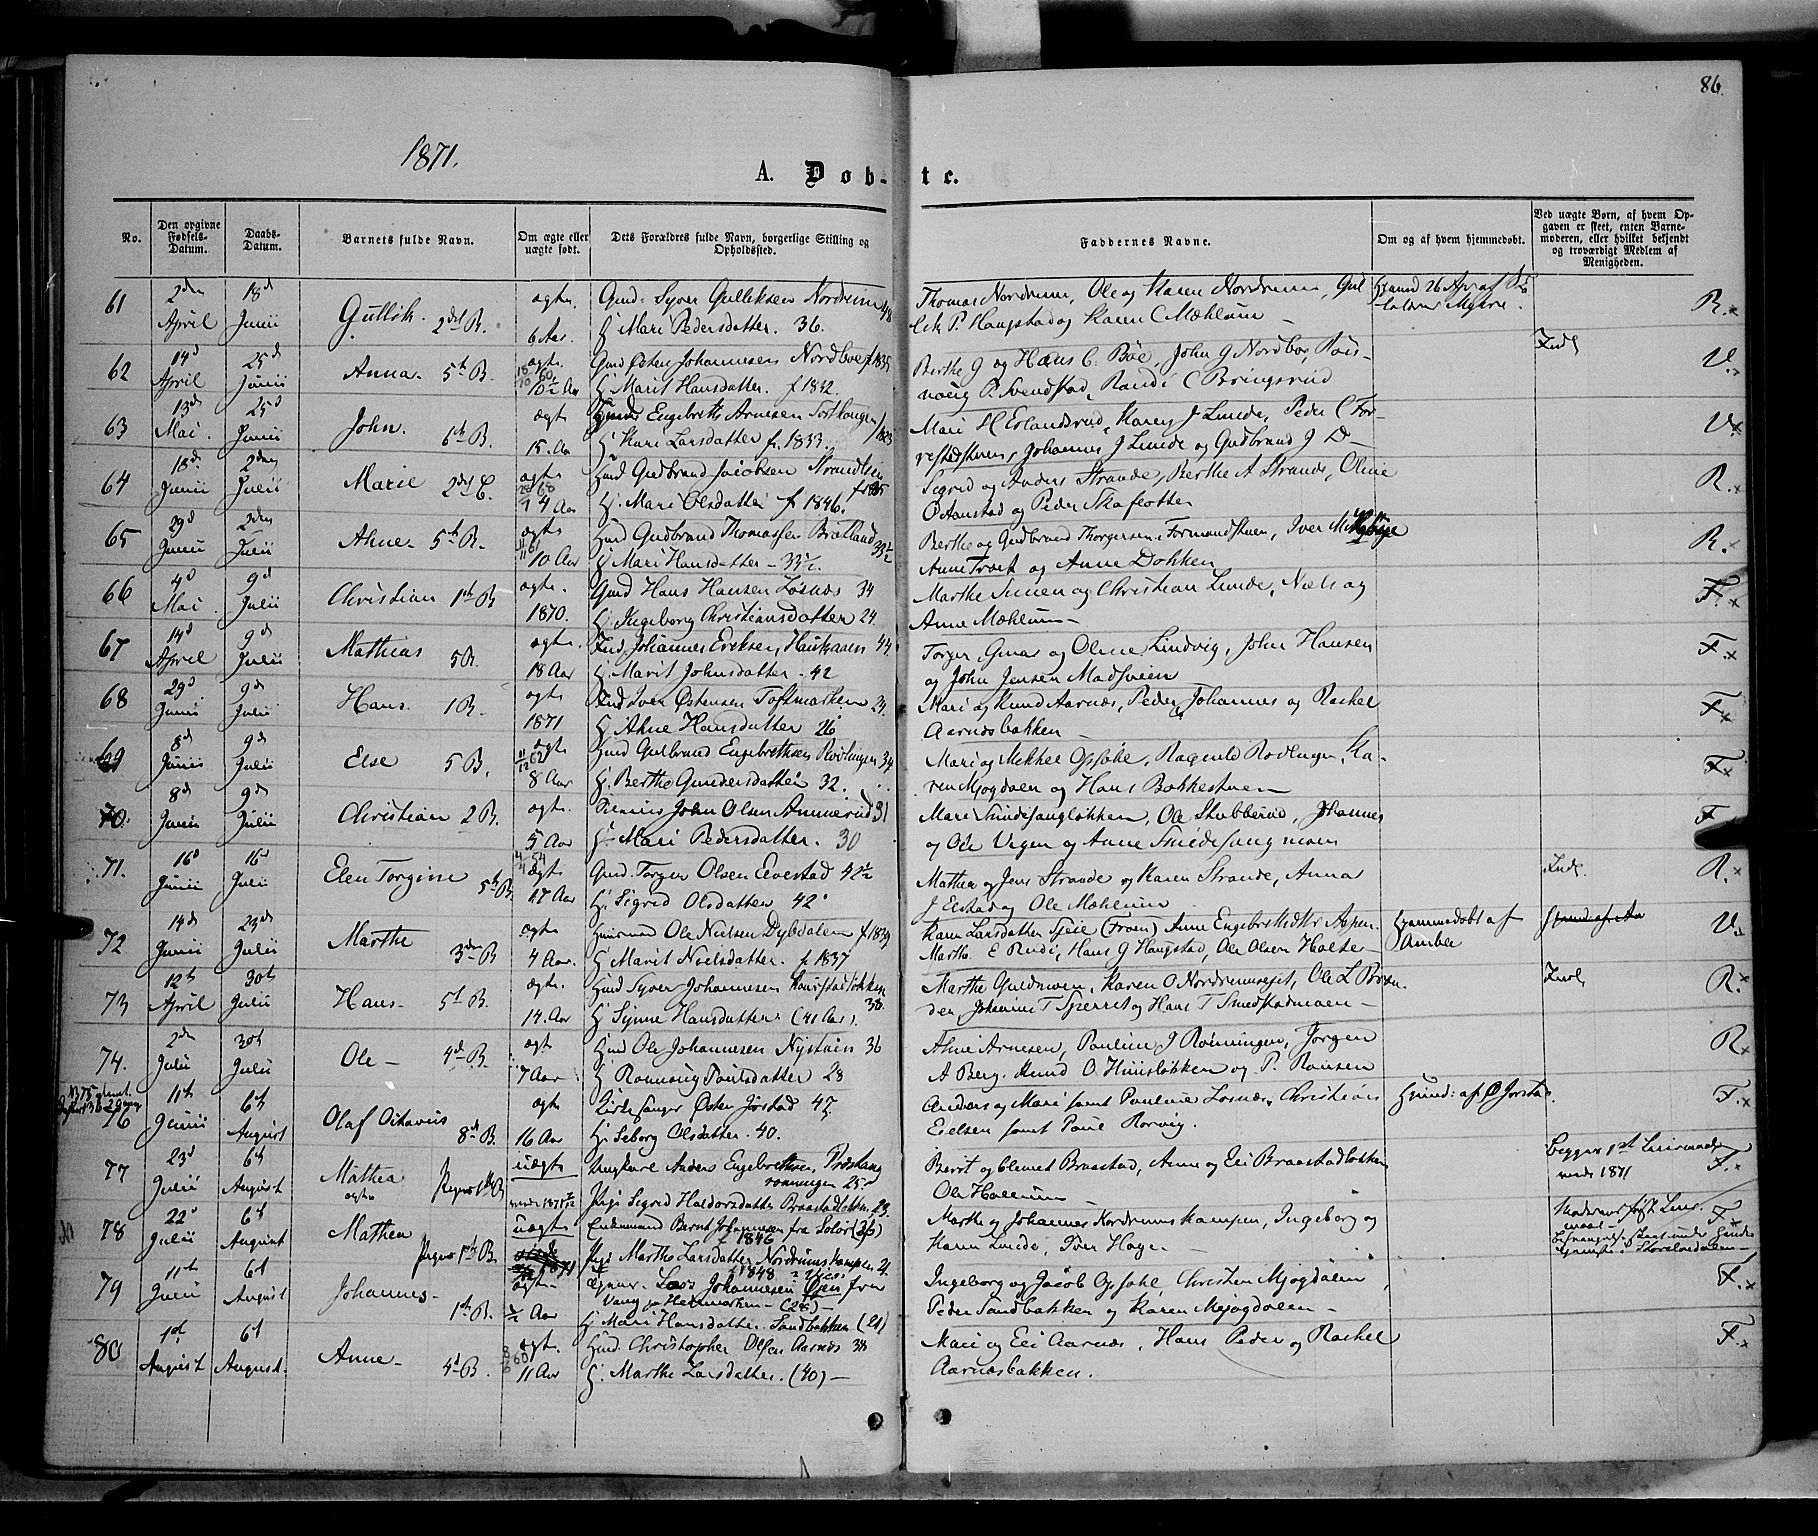 86.
1871.
A. Døb- te.
No.
Den opgivne Fødsels-Datum.
Daabs-Datum.
Barnets fulde Navn.
Om ægte eller uægte født.
Dets Forældres fulde Navn, borgerlige Stilling og Opholdssted.
Faddernes Navne.
Om og af hvem hjemmedøbt.
Ved uægte Børn, af hvem Opgaven er skeet, enten Barnemoderen, eller hvilket bekjendt og troværdigt Medlem af Menigheden.
61 2den April 18d Junii Gullik. 2det B. ægte 6 Aar. Gmd: Syver Gulliksen Nordrum 48
H. Mari Pedersdatter. 36.
Thomas Nordrum, Ole og Karen Nordrum, Gul
lik P. Haugstad og Karen C Mæhlum R.
62 14d April 25d Junii Anna 5te B. ægte 10½ Aar Gmd Østen Johannesen Nordboe f 1835
H. Marit Hansdatter. f 1832.
Berthe G og Hans C. Böe, John G Nordbo, Røn-
noug P. Svendstad, Randi C Bringsrud Indl V.
63 13d Mai. 25d Junii John. 6te B. ægte 15. Aar Engebreth Arnesen 1823
H. Kari Larsdatter f. 1833.
Mari H Erlandsrud, Karen J Lunde, Peder C For-
Johannes J Lunde og Gudbrand J D- V.
64 18d. Junii 2den Julii Marie 2det B. ægte 4 Aar Hmd Gudbrand Jacobsen f 1835
H. Mari Olsdatter f 1846.
Sigrid og Anders Strande, Berthe A Strande, Oline
og Peder Skaflotten R.
65 29d Junii 2den Julii Ahne 5te B. ægte 10 Aar Hmd Gudbrand Thomassen Brætland 33½
H. Mari Hansdatter - 33½.
Berthe og Gudbrand Thorgersen Formandstuen, Iver
Anne Troet og Anne Dokken R.
66 4d Mai. 9d Julii Christian 1ste B ægte. 1870. Gmd Hans Hansen Losnæs 34
H. Ingeborg Christiansdatter 24.
Marthe Sunen og Christian Lunde, Niels og
Anne Mæhlum F.
67 14d April 9d Julii Mathias 5 B. ægte. 18 Aar Ind. Johannes Eriksen Haukaasen 44.
H. Marit Johnsdatter - 42
Torger, Gmar og Oline Lindvig, John Hansen
og John Jensen Madsveen F.
68 29d Junii 9d Julii Hans. 1 B. ægte 1871 Ind Iver Østensen Toftmarken 24.
H. Ahne Hansdatter 26
Mari og Knud Aarnæs, Peder, Johannes og Rachel
Aarnæsbakken F.
69 8d Junii 9d Julii Else 5 B. ægte 8 Aar Hmd Gulbrand Engebrethsen Rødlingen 34
H. Berthe Gundersdatter 32.
Mari og Mekkel Opsahl, Ragnild Rødlingen, Ka-
ren Mjøgdalen og Hans Bakkestuen F.
70. 8d Junii 9d Julii Christian 2 B. ægte. 5 Aar John Olsen Amnerud 31
H. Mari Pedersdatter. 30
Mari Smidesangløkken, Ole Stubberud, Johannes
og Ole Vegen og Anne Smidesangmoen F
71. 16d Junii 16d Julii Elen Torgine 5te B. ægte 17 Aar Gmd. Torger Olsen Evestad 42½
H. Sigrid Olsdatter 42
Mathea og Jens Strande og Karen Strande, Anna
J Elstad og Ole Mæhlum Indl. R.
72 14d Junii 23d Julii Marthe 3die B ægte 4 Aar. Huusmand Ole Nielsen Dybdalen f 1839
H. Marit Nielsdatter. f 1837
Karen Larsdatter Speie (From) Anne Engebrethsdtr Aspen
Marthe E Rudi, Hans G Haugstad, Ole Olsen Holter Hjemmedøbt af Amble V.
73 12te April 30te Julii Hans 5te B. ægte. 14. Aar Hmd Syver Johannesen 38.
H. Synne Hansdatter (41 Aar).
Marthe Guldmoen, Karen O Nordrumseget, Ole L Bræn
den, Johanne T Sperret og Hans T Smedstadmoen Indl R.
74. 2den Julii 30te Julii Ole 4de B. ægte 7 Aar Hmd Ole Johannesen Nystuen 36
H. Rønnoug Poulsdatter 28
Ahne Arnesen, Pauline J Rønningen, Jørgen
A Berg, Amund O. Huusløkken og P. Hansen R
76 11te Junii 6te August Olaf Octavius 8de B. ægte 16 Aar Kirkesanger Østen Jørstad 47.
H. Seborg Olsdatter. 40.
Anders og Mari samt Pauline Losnæs, Christian
Eielsen samt Poul Rørvig. Hmd: af Ø Jørstad. F.
77 23d Julii 6te August Mathea ægte Pigens 1ste B uægte Ungkarl Anders Engebrethsen,
rønningen 25
Pige Sigrid Haldorsdatter Braastadløkken, 23.
Berit og Clemet Braastad, Anne og Eli Braastadløkken
Ole Hallum Begges 1ste Leiermaal 1871 F.
78 22d Julii 6te August Mathea Pigens 1ste B. uægte Enkemand Bernt Johannesen fra Solør (26)
f 1846
Pige Marthe Larsdatter Nordrumskampen 21.
f 1848
Marthe og Johannes Nordrumskampen, Ingeborg og
Karen Lunde, Iver Hage Moderens første Leier-
maal F
79 11te Junii 6te August Johannes 1ste B. ægte ½ Aar Lars Johannesen Øien fra
Vang paa Hedemarken - (28)
H. Mari Hansdatter Sandbakken (21)
Ingeborg og Jacob Opsahl, Christen Mjøgdalen
Peder Sandbakken og Karen Mjøgdalen F.
80 1ste August 6te August. Anne 4de B. ægte. 11 Aar Hmd. Christopher Olsen Aarnæs 38
H. Marthe Larsdatter. (40)
Mari og Eli Aarnæs, Hans, Peder og Rachel
Aarnæsbakken. F.